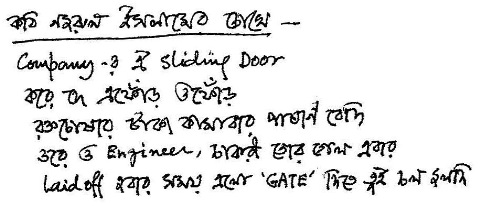 কবি নজরুল ইসলামের চোখে —
Company-র ঐ Sliding Door
করে দে এফোঁড় ওফোঁড়
রক্তচোষার টাকা কামাবার পাষাণ বেদি
ওরে ও Engineer, চাকরি তোর গেল এবার
Laid off হবার সময় এলো 'GATE' দিতে তুই চল জলদি